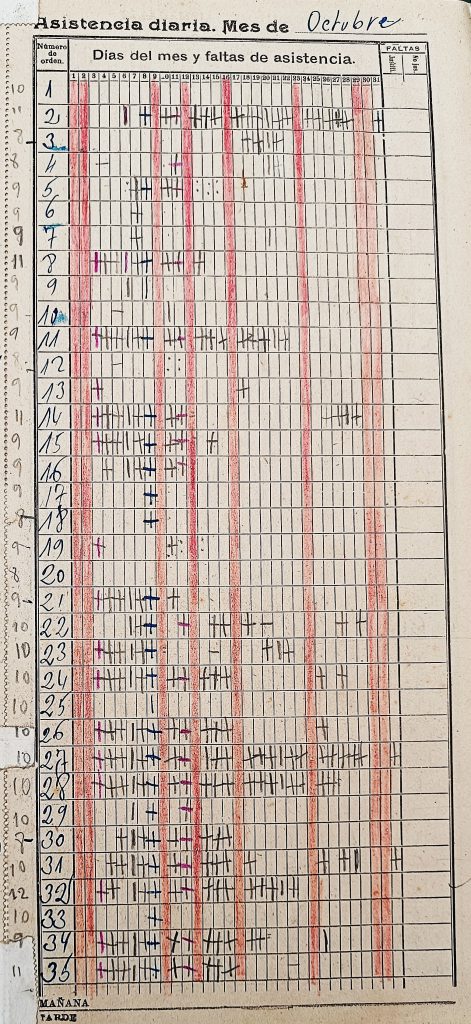 Asistencia diaria. Mes de Octubre
Número de orden.
Días del mes y faltas de asistencia.
FALTAS
1 2 3 4 5 6 7 8 9 10 11 12 13 14 15 16 17 18 19 20 21 22 23 24 25 26 27 28 29 30 31
10 1
11 2
8 3
8 4
9 5
9 6
9 7
11 8
9 9
9 10
9 11
8 12
9 13
11 14
9 15
9 16
9 17
8 18
9 19
8 20
9 21
10 22
10 23
10 24
10 25
10 26
10 27
10 28
10 29
8 30
10 31
12 32
10 33
9 34
11 35
MAÑANA
TARDE